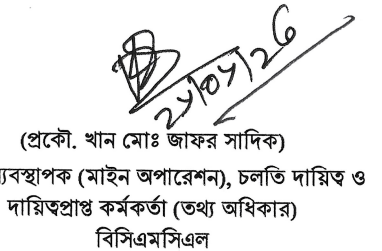 (প্রকৌ. খান মোঃ জাফর সাদিক)
ব্যবস্থাপক (মাইন অপারেশন), চলতি দায়িত্ব ও
দায়িত্বপ্রাপ্ত কর্মকর্তা (তথ্য অধিকার)
বিসিএমসিএল